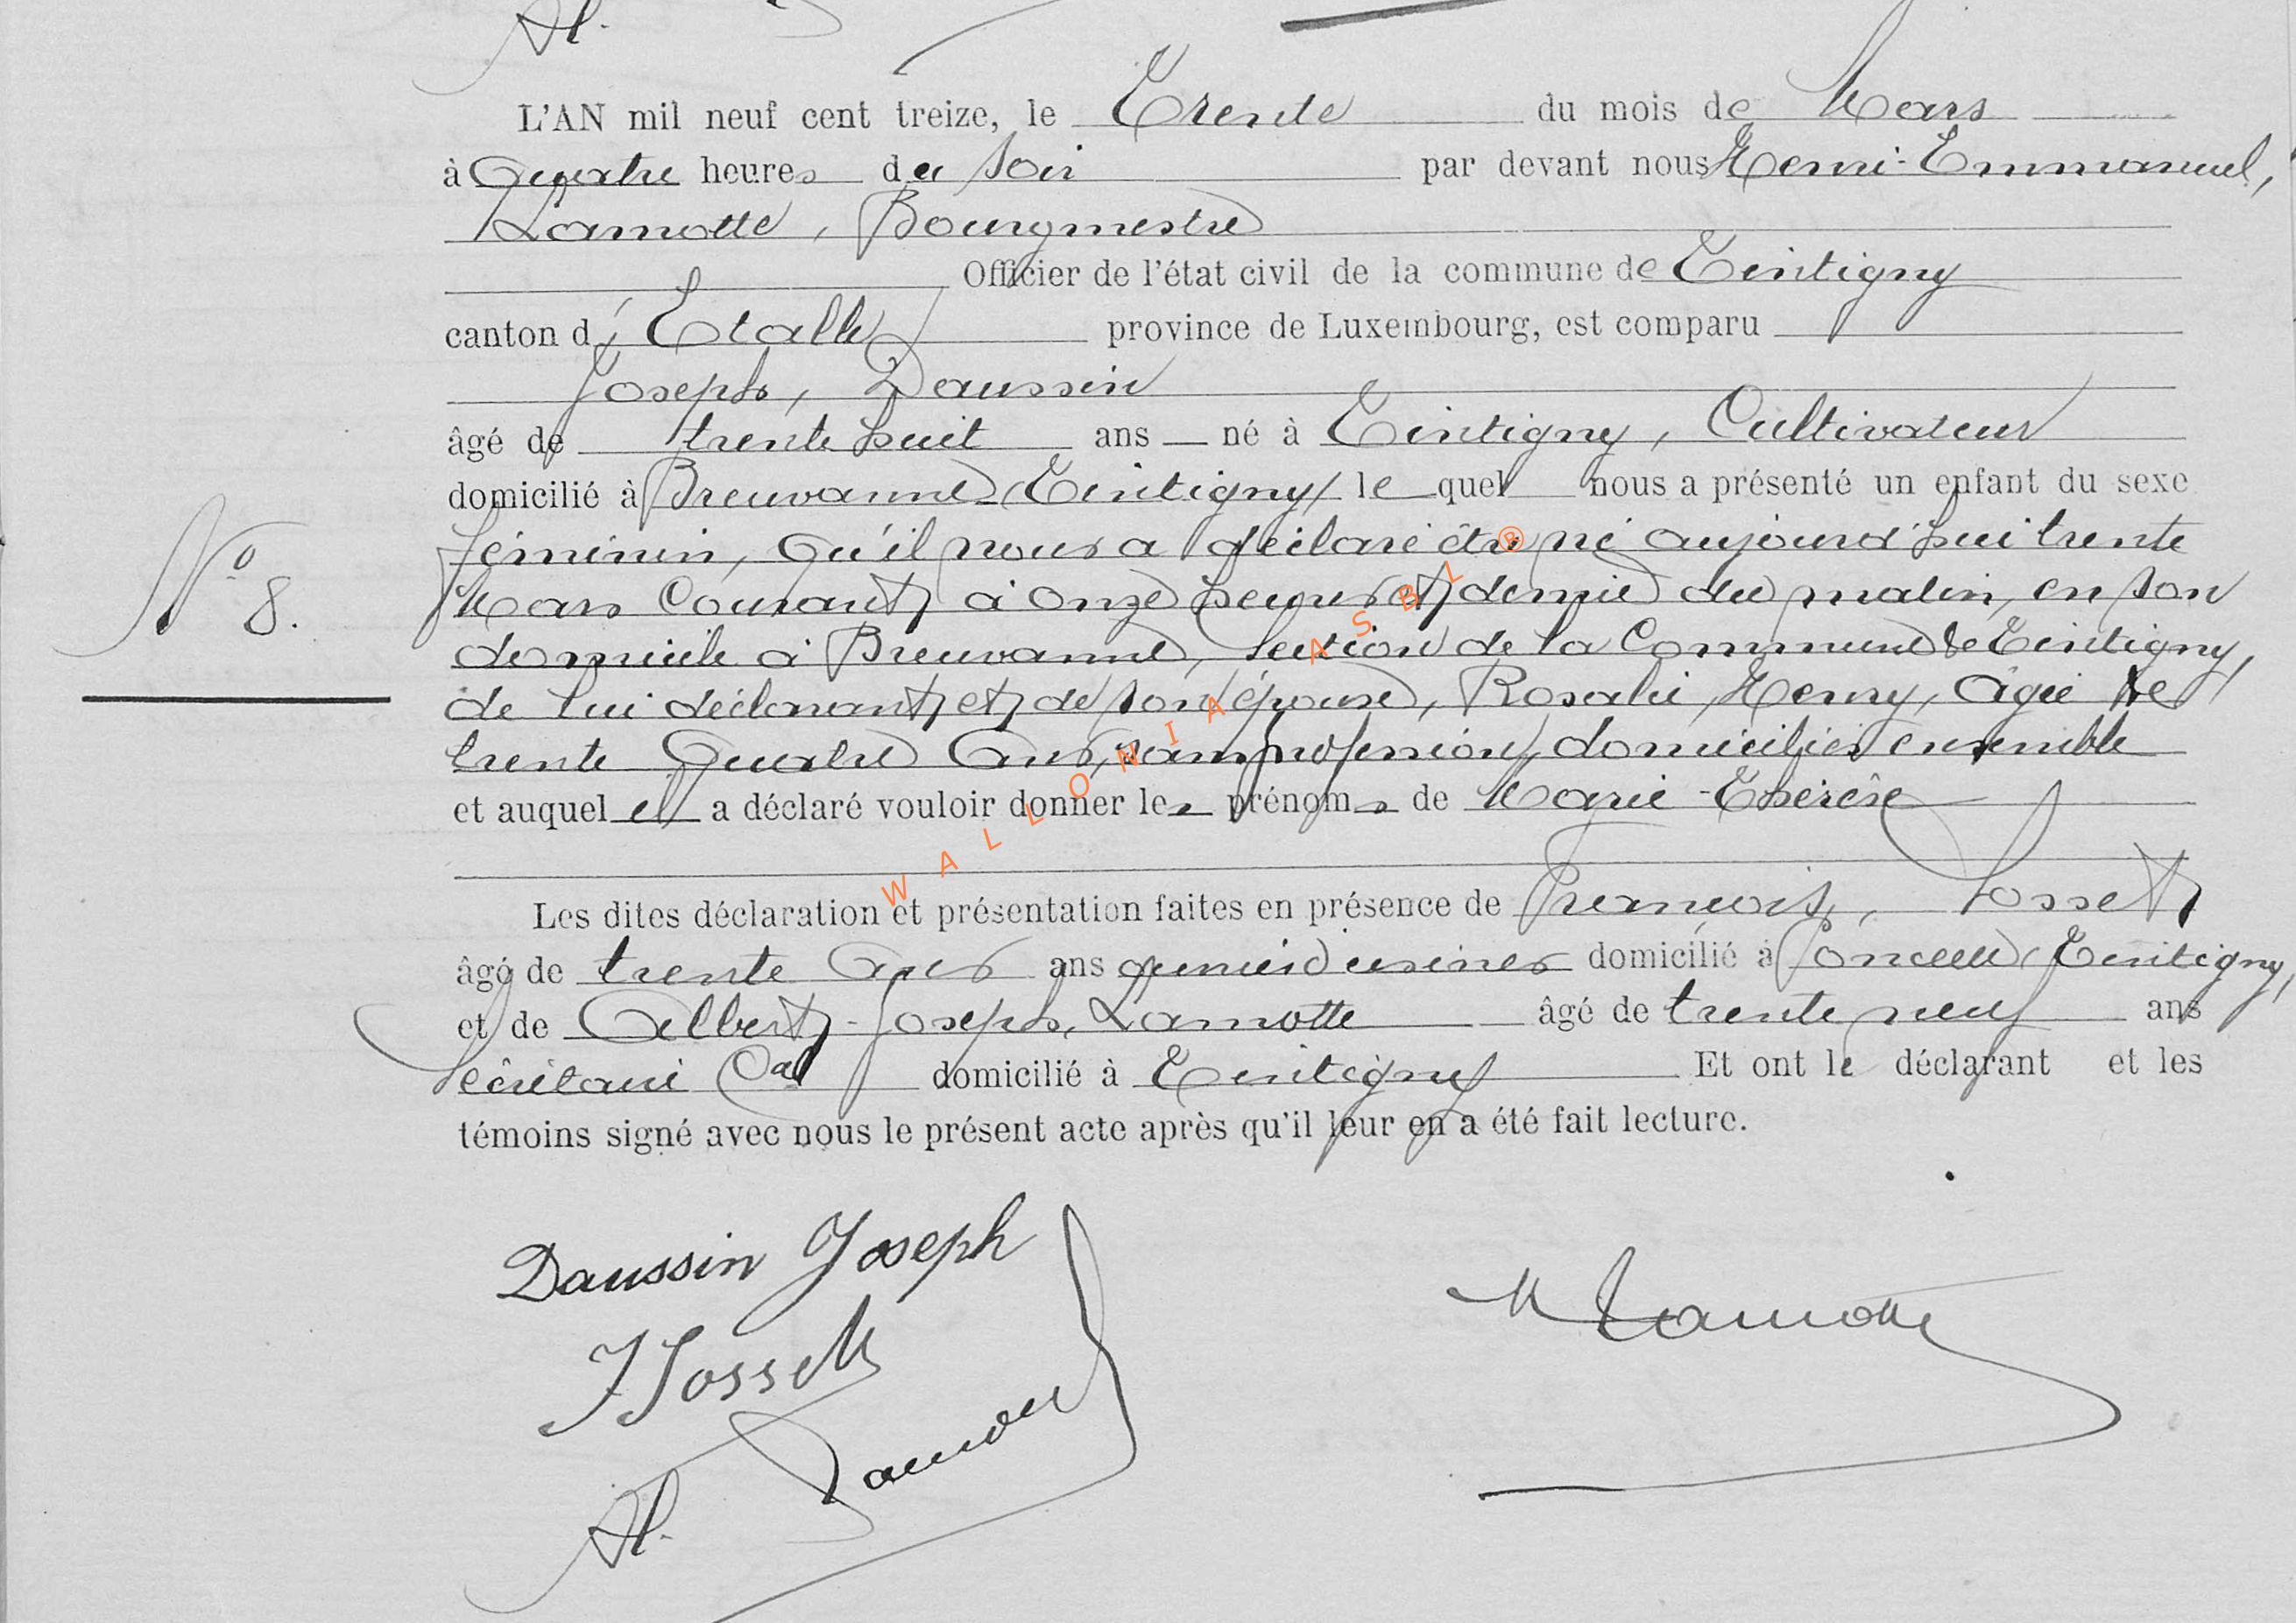 Al.
L'AN mil neuf cent treize, le Trente du mois de Mars
à Quatre heures du soir par devant nous Henri-Emmanuel,
Lamotte, Bourgmestre
Officier de l'état civil de la commune de Tintigny
canton d'Etalle province de Luxembourg, est comparu
Joseph, Daussin
âgé de trente huit ans né à Tintigny, Cultivateur
domicilié à Breuvanne (Tintigny) lequel nous a présenté un enfant du sexe
féminin, qu'il nous a déclaré être né aujourd'hui trente
Mars Courant, à onze heures et demie du matin, en son
domicile à Breuvanne, Section de la Commune de Tintigny,
de lui déclarant et de son épouse, Rosalie, Henry, âgée de
trente Quatre Ans, sans profession, domiciliés ensemble
et auquel il a déclaré vouloir donner les prénoms de Marie-Thérèse
Les dites déclaration et présentation faites en présence de François, Sosset
âgé de trente ans domicilié à Tintigny,
et de Albert-Joseph, Lamotte âgé de trente neuf ans
Secrétaire Cal domicilié à Tintigny Et ont le déclarant et les
témoins signé avec nous le présent acte après qu'il leur en a été fait lecture.
No 8.
WALLONIA ASBL ®
Daussin Joseph
Sosset
Al. Lamotte
H Lamotte